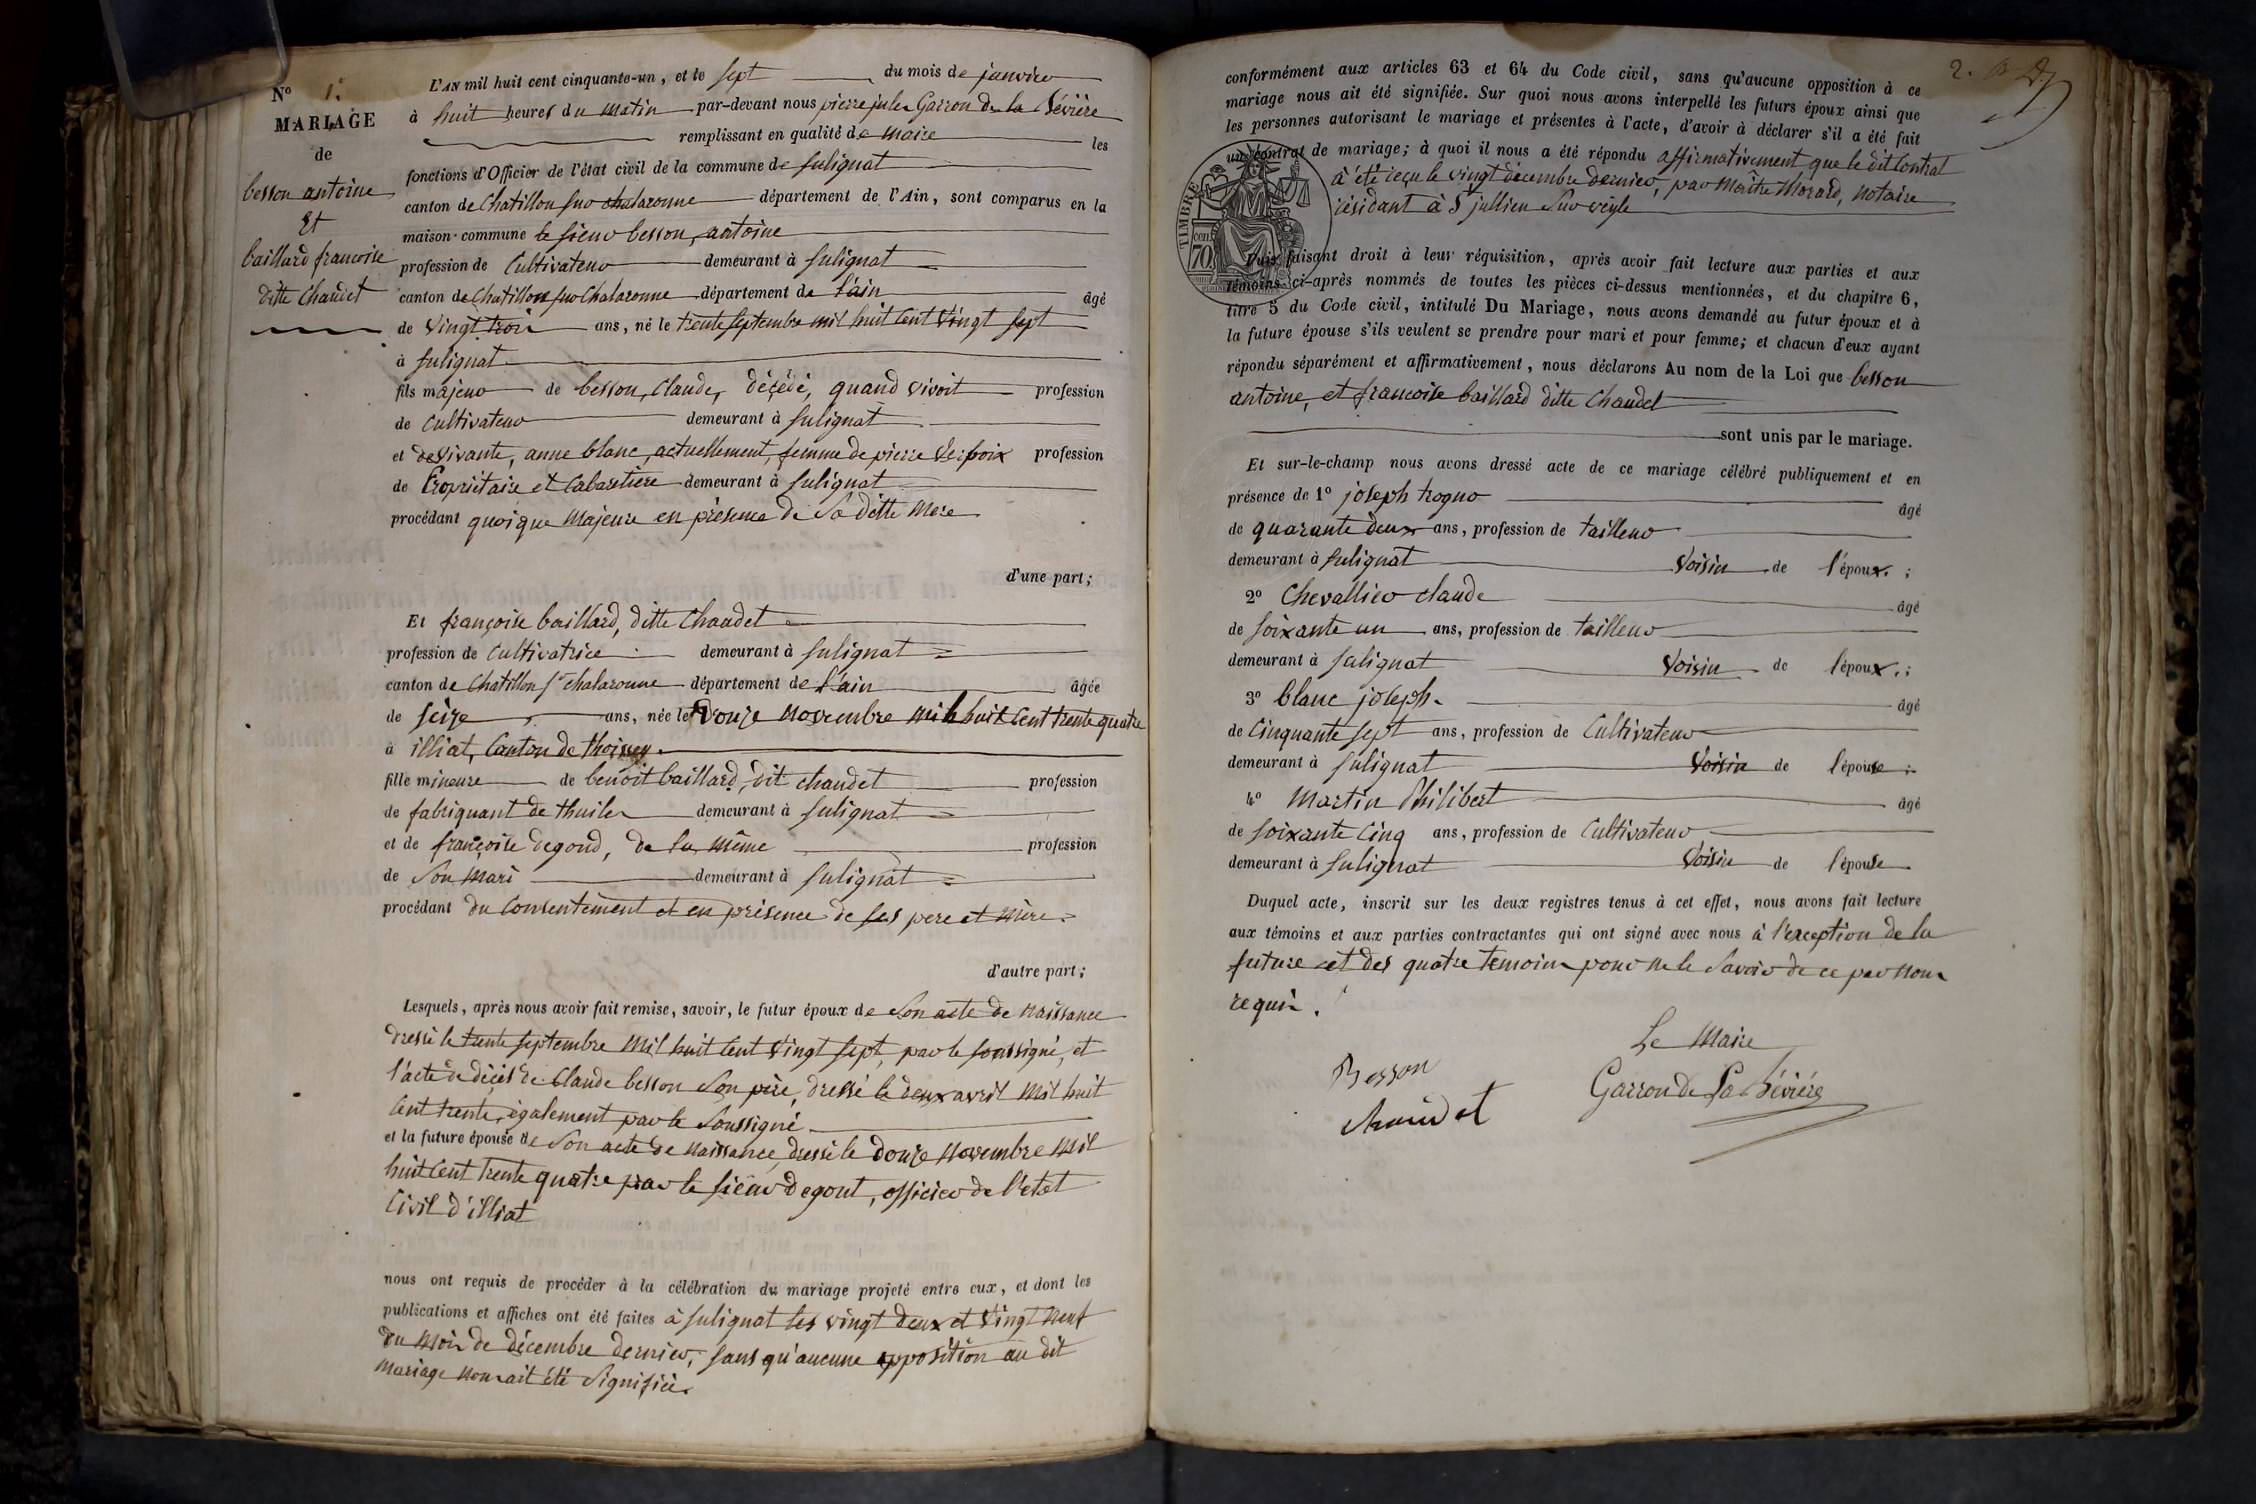 N° 1.
MARIAGE
de
besson antoine
Et
baillard francoise
ditte Chaudet
L'AN mil huit cent cinquante-un, et le sept du mois de janvier
à huit heures du matin par-devant nous pierre jules Garron de la Bévière
remplissant en qualité de maire les
fonctions d'Officier de l'état civil de la commune de sulignat
canton de Chatillon sur chalaronne département de l'Ain, sont comparus en la
maison-commune le sieur besson, antoine
profession de Cultivateur demeurant à sulignat
canton de Chatillon sur Chalaronne département de l'ain âgé
de vingt trois ans, né le trente septembre mil huit cent vingt sept
à sulignat
fils majeur de besson, Claude, décédé, quand vivoit profession
de Cultivateur demeurant à sulignat
et de vivante, anne blanc, actuellement, femme de pierre Verpoix profession
de Propriétaire et Cabaretière demeurant à sulignat
procédant quoique Majeure en présence de Sa ditte Mere
d'une part;
Et françoise baillard, ditte Chaudet
profession de Cultivatrice demeurant à sulignat
canton de Chatillon sr chalaronne département de l'ain âgée
de seize ans, née le Douze Novembre mil huit cent trente quatre
à illiat, Canton de thoissey.
fille mineure de benoit baillard, dit chaudet profession
de fabriquant de thuiles demeurant à sulignat
et de françoise degond, de la même profession
de Son Mari demeurant à sulignat
procédant du Consentement et en présence de ses pere et Mère.
d'autre part;
Lesquels, après nous avoir fait remise, savoir, le futur époux de Son acte de Naissance
dressé le trente septembre Mil huit cent vingt sept, par le soussigné, et
l'acte de décès de Claude besson Son père, dressé le deux avril Mil huit
Cent trente, également par le Soussigné
et la future épouse de Son acte de Naissance, dressé le douze Novembre Mil
huit Cent trente quatre par le sieur Degout, officier de l'état
Civil d'illiat
nous ont requis de procéder à la célébration du mariage projeté entre eux, et dont les
publications et affiches ont été faites à sulignat les vingt deux et vingt neuf
du Mois de décembre dernier, sans qu'aucune opposition au dit
Mariage Nous ait été Signifiée.
2.
conformément aux articles 63 et 64 du Code civil, sans qu'aucune opposition à ce
mariage nous ait été signifiée. Sur quoi nous avons interpellé les futurs époux ainsi que
les personnes autorisant le mariage et présentes à l'acte, d'avoir à déclarer s'il a été fait
un contrat de mariage; à quoi il nous a été répondu affirmativement que le dit Contrat
à été reçu le vingt décembre dernier, par Maître Morard, Notaire
résidant à St jullien Sur veyle
TIMBRE
cen.
70.
Puis faisant droit à leur réquisition, après avoir fait lecture aux parties et aux
témoins ci-après nommés de toutes les pièces ci-dessus mentionnées, et du chapitre 6,
titre 5 du Code civil, intitulé Du Mariage, nous avons demandé au futur époux et à
la future épouse s'ils veulent se prendre pour mari et pour femme; et chacun d'eux ayant
répondu séparément et affirmativement, nous déclarons Au nom de la Loi que besson
antoine, et francoise baillard ditte Chaudet
sont unis par le mariage.
Et sur-le-champ nous avons dressé acte de ce mariage célébré publiquement et en
présence de 1° joseph trogno âgé
de quarante deux ans, profession de tailleur
demeurant à sulignat Voisin de l'époux.;
2° Chevallier claude âgé
de soixante un ans, profession de tailleur
demeurant à sulignat Voisin de l'époux.;
3° blanc joseph. âgé
de Cinquante sept ans, profession de Cultivateur
demeurant à sulignat Voisin de l'épouse;
4° Martin Philibert âgé
de soixante Cinq ans, profession de Cultivateur
demeurant à sulignat Voisin de l'épouse
Duquel acte, inscrit sur les deux registres tenus à cet effet, nous avons fait lecture
aux témoins et aux parties contractantes qui ont signé avec nous à l'exception de la
future et des quatre temoins pour ne le Savoir de ce par Nous
requis.
Le Maire
Besson
Garron de La Bévière
chaudet